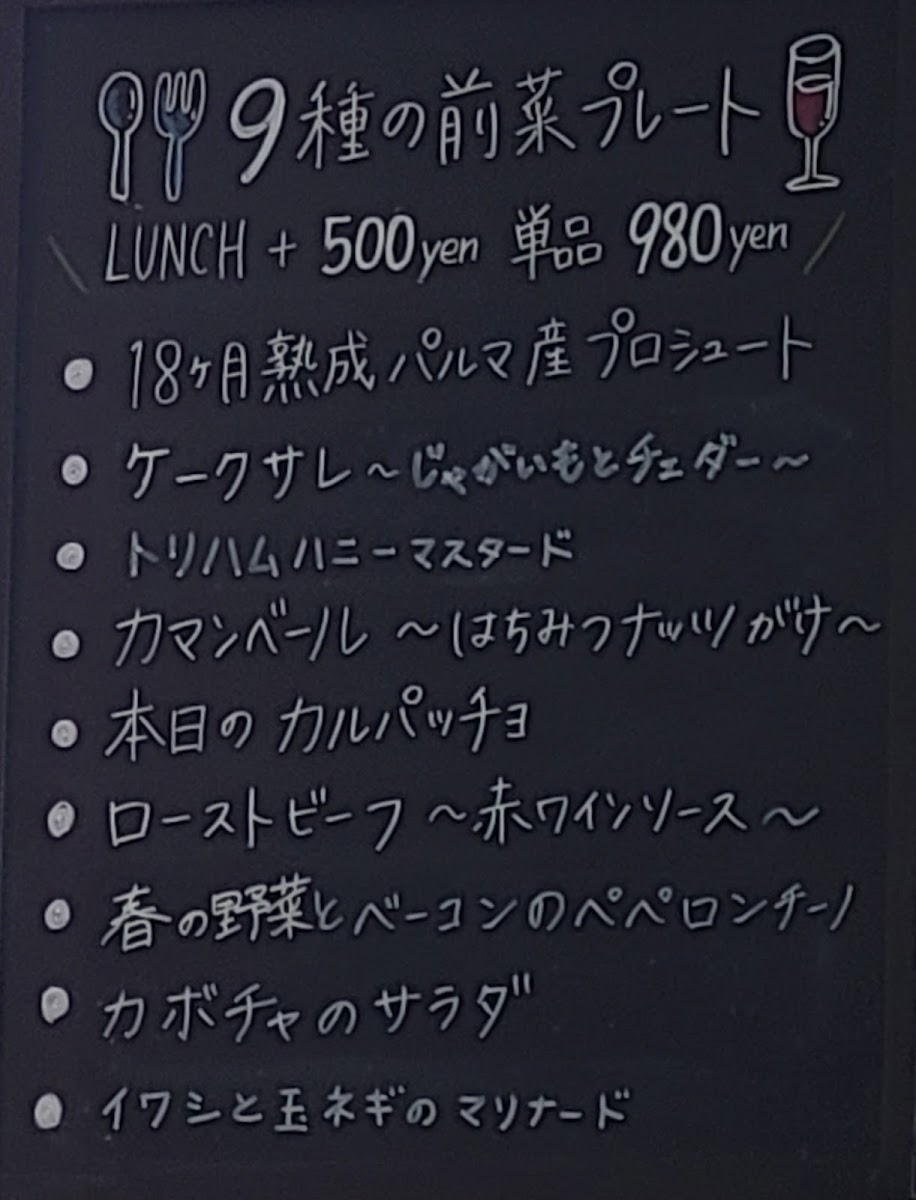 9種の前菜プレート
LUNCH + 500yen 単品 980yen
• 18ヶ月熟成パルマ産プロシュート
• ケークサレ~じゃがいもとチェダー~
• トリハムハニーマスタード
• カマンベール ~はちみつナッツがけ~
• 本日のカルパッチョ
• ローストビーフ ~赤ワインソース~
• 春の野菜とベーコンのペペロンチーノ
• カボチャのサラダ
• イワシと玉ネギのマリナード